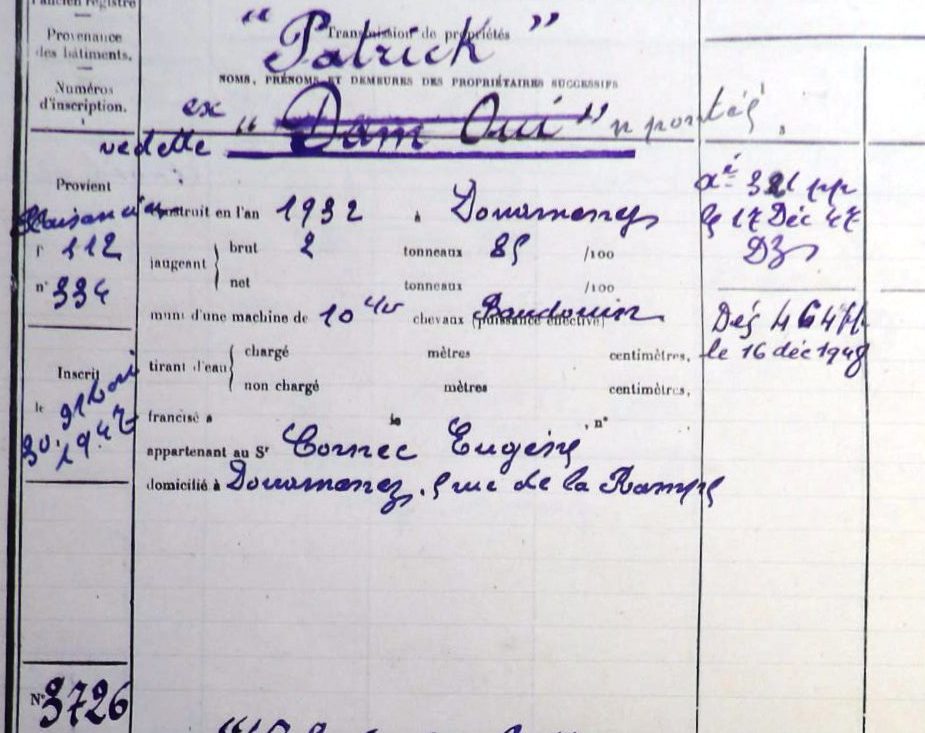 l'ancien registre
Provenance
des bâtiments.
Numéros
d'inscription.
" Patrick "
Transmission de propriétés
NOMS, PRÉNOMS ET DEMEURES DES PROPRIÉTAIRES SUCCESSIFS
ex
vedette " Dam Oui "
Provient
Plaisance
f° 112
n° 334
Inscrit
le
30, 1947
construit en l'an 1932 à Douarnenez
jaugeant
brut 2 tonneaux 85 /100
net tonneaux /100
muni d'une machine de 10 chevaux (puissance effective) Baudouin
tirant d'eau
chargé mètres centimètres,
non chargé mètres centimètres,
francisé à le , n°
appartenant au Sr Cornec Eugène
domicilié à Douarnenez, 5 rue de la Rampe
le 17 Déc 47
DZ
Dés 464
le 16 déc 1948
N° 3726